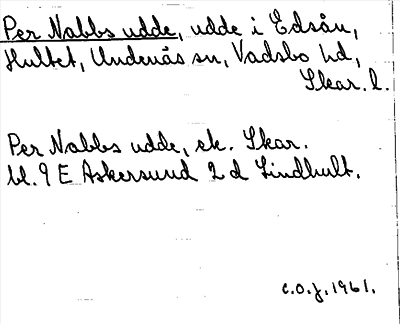 Per Nabbs udde, udde i Edsån,
Hultet, Undenäs sn, Vadsbo hd,
Skar. l.
Per Nabbs udde, ek. Skar.
bl. 9 E Askersund 2 d Lindhult.
C.O.J. 1961.